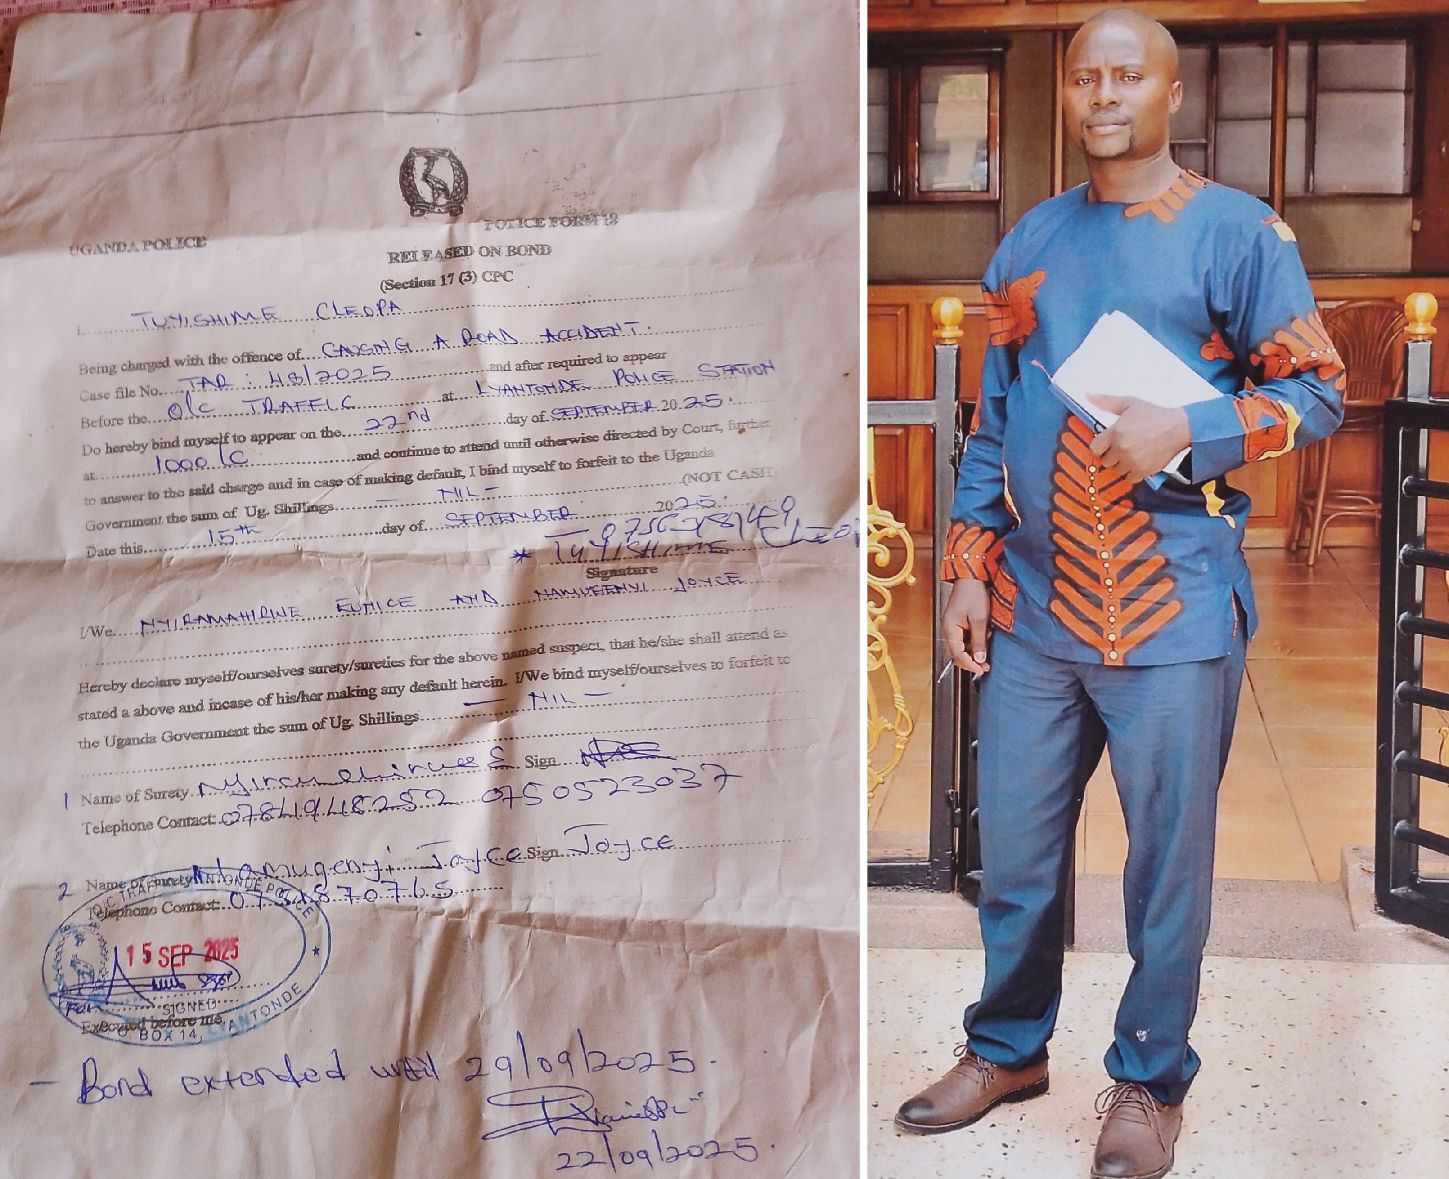 UGANDA POLICE
POLICE FORM 18
RELEASED ON BOND
(Section 17 (3) CPC
I TUYISHIME CLEOPA
Being charged with the offence of CAUSING A ROAD ACCIDENT.
Case file No. TAR: 48/2025 and after required to appear
Before the O/C TRAFFIC at LYANTONDE POLICE STATION
Do hereby bind myself to appear on the 22nd day of SEPTEMBER 2025.
at 1000/C and continue to attend until otherwise directed by Court, further
to answer to the said charge and in case of making default, I bind myself to forfeit to the Uganda
Government the sum of Ug. Shillings - NIL - (NOT CASH)
Date this 15th day of SEPTEMBER 2025.
* TUYISHIME CLEOPA
Signature
I/We NYIRAMAHIRWE EUNICE AND NAMUGENYI JOYCE
Hereby declare myself/ourselves surety/sureties for the above named suspect, that he/she shall attend as
stated a above and incase of his/her making any default herein. I/We bind myself/ourselves to forfeit to
the Uganda Government the sum of Ug. Shillings - NIL -
1 Name of Surety Sign
Telephone Contact: 0784948252 0750523037
2 Name of surety Namugenyi Joyce Sign Joyce
Telephone Contact:
O/C TRAFFIC LYANTONDE POLICE
15 SEP 2025
For
SIGNED
Executed before me
P.O. BOX 14, LYANTONDE
- Bond extended until 29/09/2025.
22/09/2025.